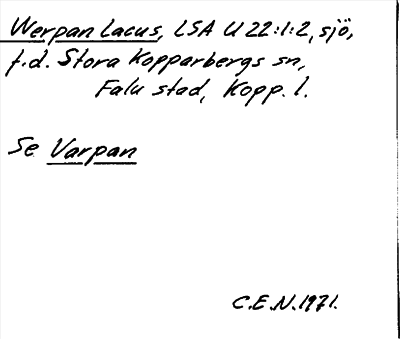 Werpan Lacus, LSA U 22:1:2, sjö,
f.d. Stora Kopparbergs sn,
Falu stad, Kopp. l.
Se Varpan
C.E.N. 1971.